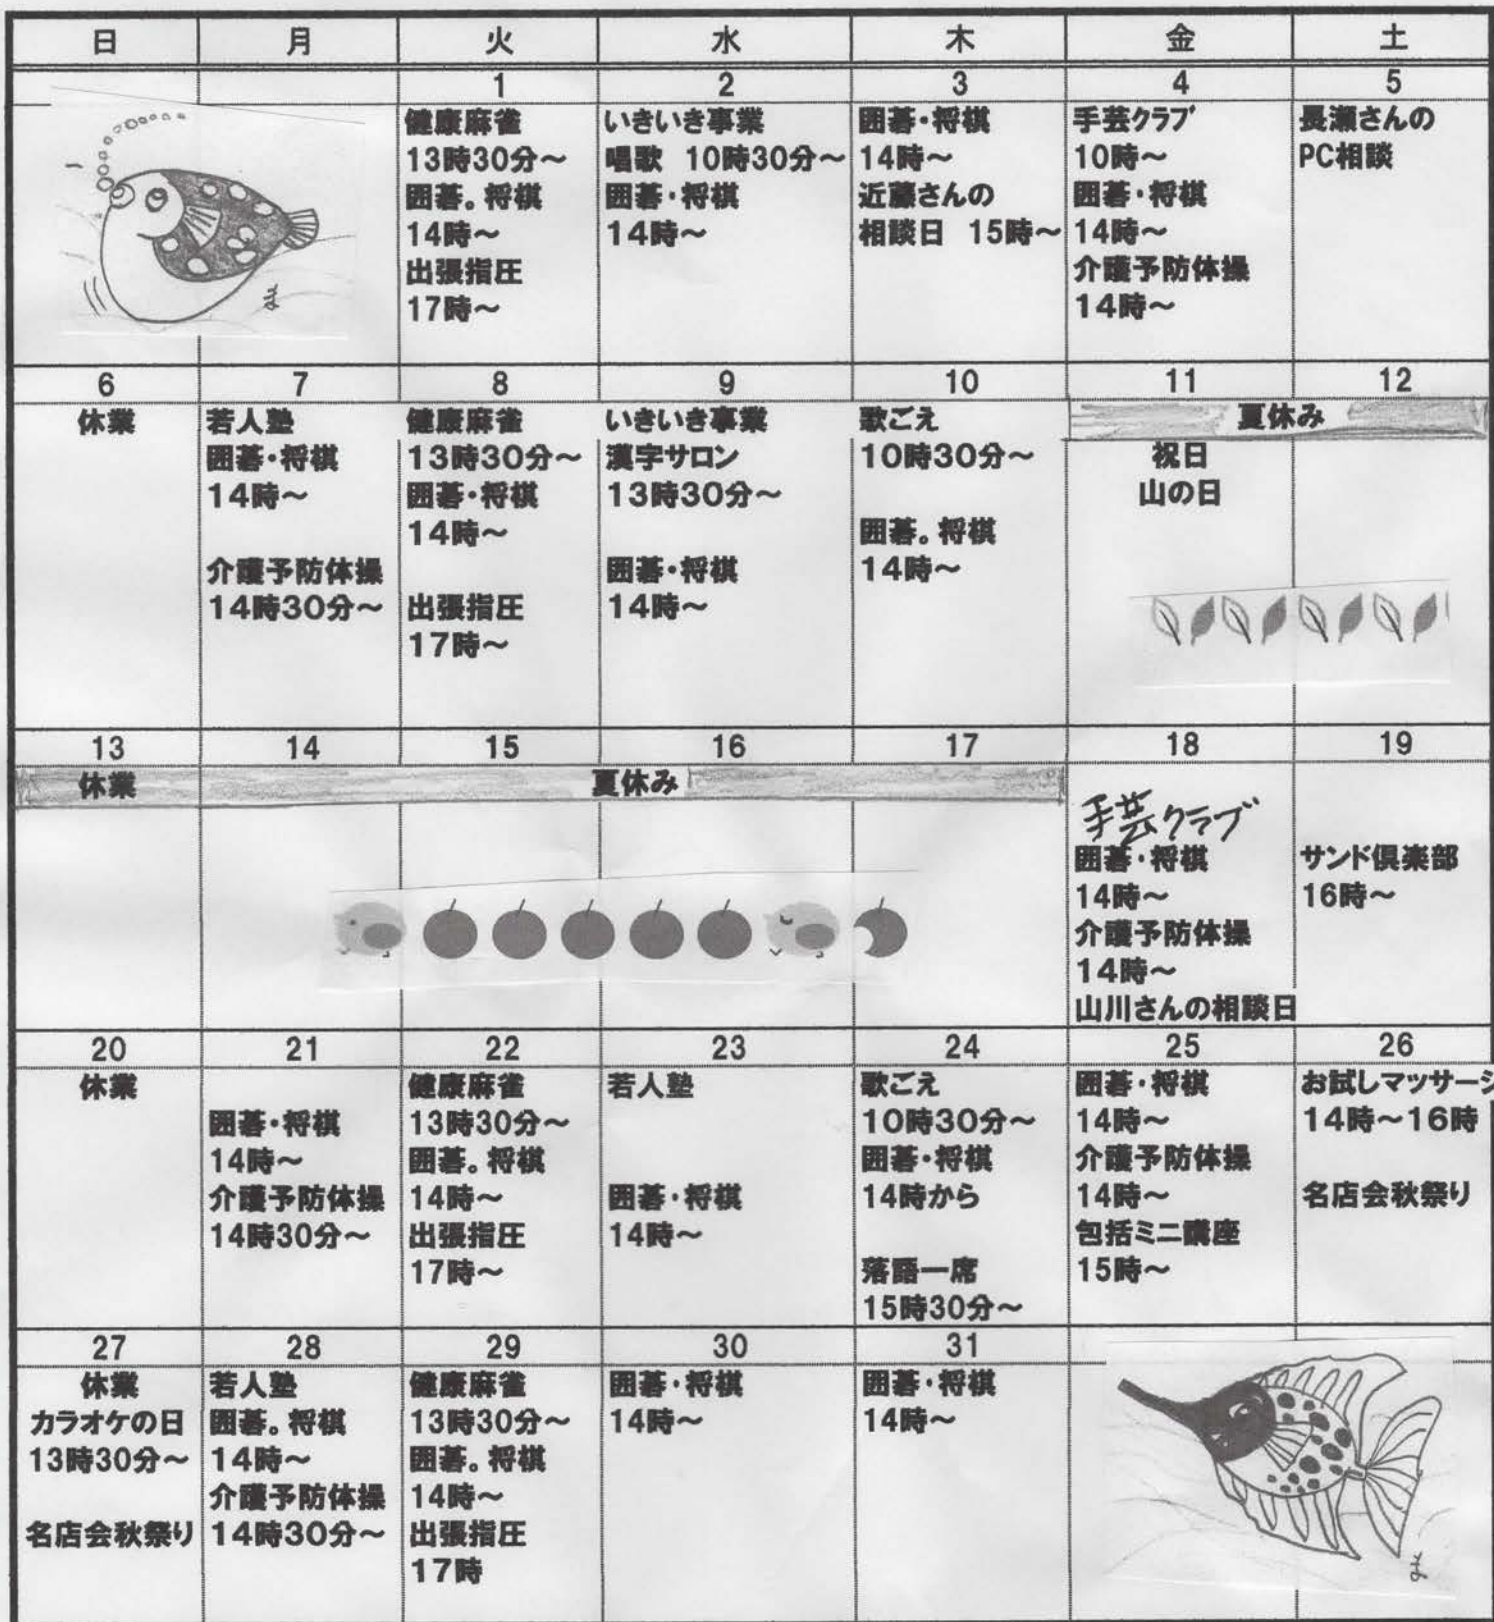 日 月 火 水 木 金 土
1 2 3 4 5
健康麻雀
13時30分～
囲碁。将棋
14時～
出張指圧
17時～
いきいき事業
唱歌 10時30分～
囲碁・将棋
14時～
囲碁・将棋
14時～
近藤さんの
相談日 15時～
手芸クラブ
10時～
囲碁・将棋
14時～
介護予防体操
14時～
長瀬さんの
PC相談
6 7 8 9 10 11 12
休業
若人塾
囲碁・将棋
14時～
介護予防体操
14時30分～
健康麻雀
13時30分～
囲碁・将棋
14時～
出張指圧
17時～
いきいき事業
漢字サロン
13時30分～
囲碁・将棋
14時～
歌ごえ
10時30分～
囲碁。将棋
14時～
夏休み
祝日
山の日
13 14 15 16 17 18 19
休業
夏休み
手芸クラブ
囲碁・将棋
14時～
介護予防体操
14時～
山川さんの相談日
サンド倶楽部
16時～
20 21 22 23 24 25 26
休業
囲碁・将棋
14時～
介護予防体操
14時30分～
健康麻雀
13時30分～
囲碁。将棋
14時～
出張指圧
17時～
若人塾
囲碁・将棋
14時～
歌ごえ
10時30分～
囲碁・将棋
14時から
落語一席
15時30分～
囲碁・将棋
14時～
介護予防体操
14時～
包括ミニ講座
15時～
お試しマッサージ
14時～16時
名店会秋祭り
27 28 29 30 31
休業
カラオケの日
13時30分～
名店会秋祭り
若人塾
囲碁。将棋
14時～
介護予防体操
14時30分～
健康麻雀
13時30分～
囲碁。将棋
14時～
出張指圧
17時
囲碁・将棋
14時～
囲碁・将棋
14時～